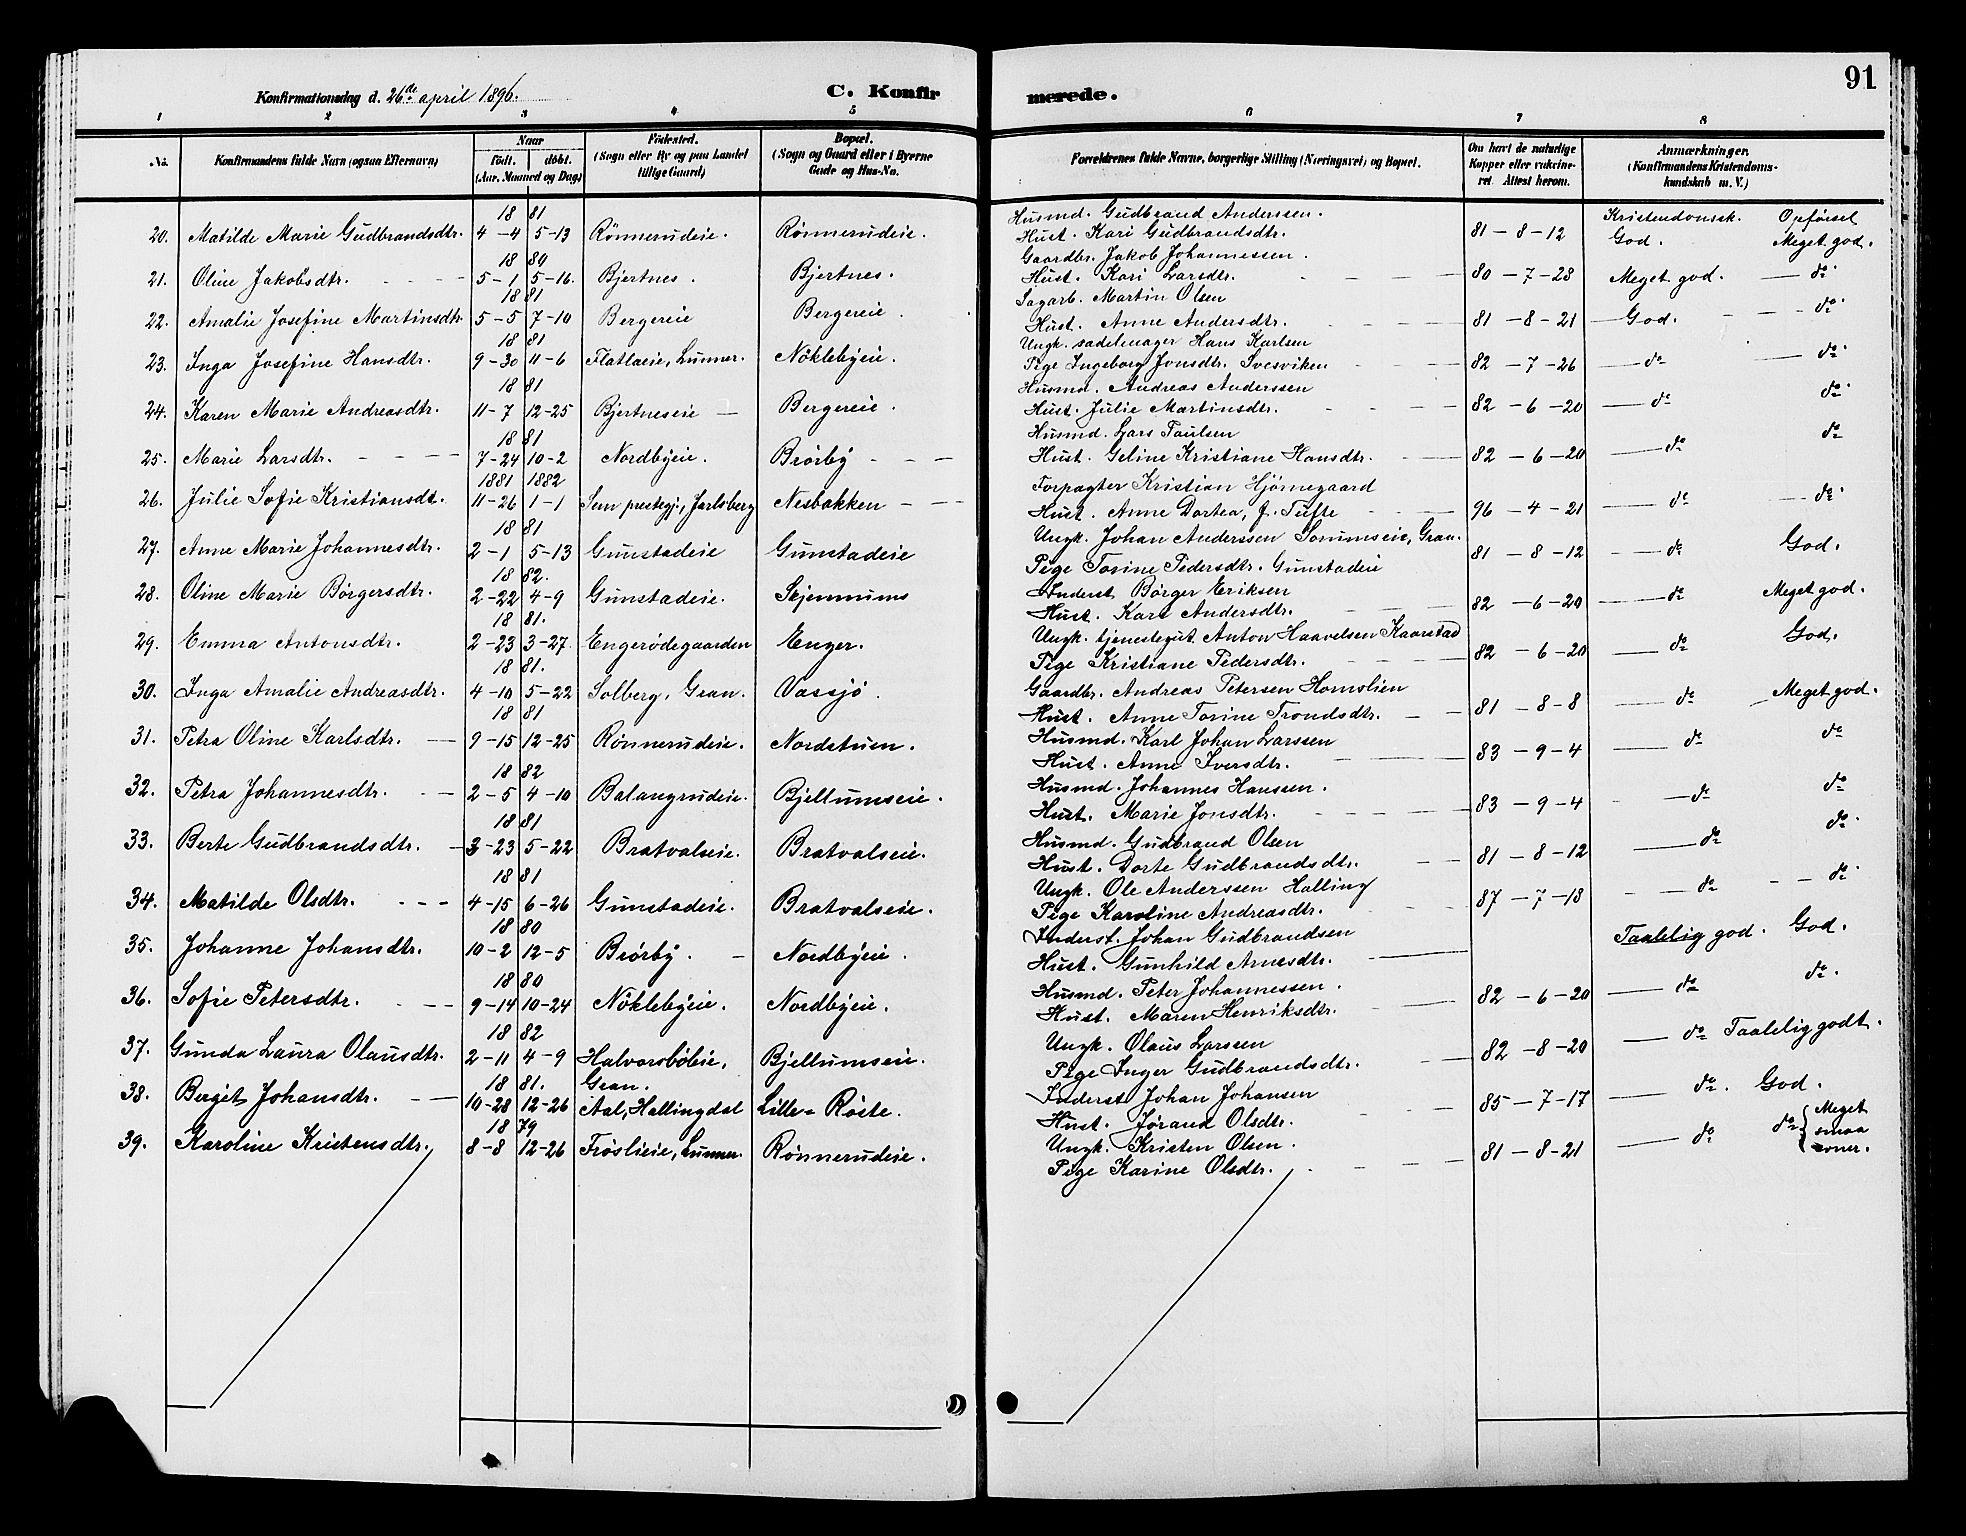 91
Konfirmationsdag d. 26de april 1896.
C. Konfirmerede.
1 2 3 4 5 6 7 8
No. Konfirmandens fulde Navn (ogsaa Efternavn) Naar født. døbt. (Aar, Maaned og Dag) Fødested. (Sogn eller By og paa Landet tillige Gaard) Bopæl. (Sogn og Gaard eller i Byerne Gade og Hus-No. Forældrenes fulde Navne, borgerlige Stilling (Næringsvei) og Bopæl. Om havt de naturlige Kopper eller vakcineret. Attest herom. Anmærkninger. (Konfirmandens Kristendomskundskab m. V.)
18 81 Husmd. Gudbrand Anderssen. Kristendomssk. Opførsel
20. Matilde Marie Gudbrandsdtr. 4-4 5-13 Rönnerudeie. Rönnerudeie. Hust. Kari Gudbrandsdtr. 81-8-12 God. Meget god.
18 80 Gaardbr. Jakob Johannessen.
21. Oline Jakobsdtr. 5-1 5-16. Bjertnes. Bjertnes. Hust. Kari Larsdtr. 80-7-28 Meget god. — do
18 81 Sagarb. Martin Olsen
22. Amalie Josefine Martinsdtr. 5-5 7-10 Bergereie Bergereie. Hust. Anne Andersdtr. 81-8-21 God. — do
18 81 Ungk. sadelmager Hans Karlsen
23. Inga Josefine Hansdtr. 9-30 11-6 Flatlaeie, Lunner. Nöklebyeie. Pige Ingeborg Jonsdtr. Svesviken 82-7-26 — do — do
18 81 Husmd. Andreas Anderssen
24. Karen Marie Andreasdtr. 11-7 12-25 Bjertneseie — Bergereie. Hust. Julie Martinsdtr. 82-6-20 — do do
18 81 Husmd. Lars Paulsen
25. Marie Larsdtr. 7-24 10-2 Nordbyeie. Brörby Hust. Geline Kristiane Hansdtr. 82-6-20 — do do
1881 1882 Forpagter Kristian Hjörnegaard
26. Julie Sofie Kristiansdt. 11-26 1-1 Sem prestegj., Jarlsberg Nesbakken Hust. Anne Dortea, f. Tufte 96-4-21 — do — do
18 81 Ungk. Johan Anderssen Sommseie, Gran.
27. Anne Marie Johannesdtr. 2-1 5-13 Gunstadeie Gunstadeie Pige Torine Pedersdtr. Gunstadeie 81-8-12 — do God.
18 82. Inderst. Börger Eriksen
28. Oline Marie Börgersdtr. 2-22 4-9 Gunstadeie. Skjennums Hust. Kari Andersdtr. 82-6-20 — do Meget god.
18 81. Ungk. tjenestegut Anton Haavelsen Kaarstad
29. Emma Antonsdtr. 2-23 3-27. Engerödegaarden Enger. Pige Kristiane Pedersdtr. 82-6-20 — do God.
18 81. Gaardbr. Andreas Petersen Homslien
30. Inga Amalie Andreasdtr. 4-10 5-22 Solberg, Gran. Vassjö. Hust. Anne Torine Trondsdtr. 81-8-8 — do Meget god.
18 81 Husmd. Karl Johan Larssen
31. Petra Oline Karlsdtr. 9-15 12-25 Rönnerudeie. Nordstuen. Hust. Anne Iversdtr. 83-9-4 — do do
18 82 Husmd. Johannes Hanssen.
32. Petra Johannesdtr. 2-5 4-10 Balangrudeie. Bjellumseie. Hust. Marie Jonsdtr. 83-9-4 — do do
18 81 Husmd. Gudbrand Olsen
33. Berte Gudbrandsdtr. 3-23 5-22 Bratvalseie. Bratvalseie. Hust. Dorte Gudbrandsdtr. 81-8-12 — do do
18 81 Ungk. Ole Anderssen Halling
34. Matilde Olsdtr. 4-15 6-26 Gunstadeie. Bratvalseie. Pige Karoline Andreasdtr. 87-7-18 — do — do
18 80 Inderst. Johan Gudbrandsen
35. Johanne Johansdtr. 10-2 12-5 Brörby. Nordbyeie. Hust. Gunhild Arnesdtr. Taalelig god. God.
18 80 Husmd. Peter Johannessen.
36. Sofie Petersdtr. 9-14 10-24 Nöklebyeie. Nordbyeie. Hust. Maren Henriksdtr. 82-6-20 — do do
18 82 Ungk. Olaus Larssen
37. Gunda Laura Olausdtr. 2-11 4-9 Halvorsböeie, Gran. Bjellumseie. Pige Inger Gudbrandsdtr. 82-8-20 — do Taalelig godt.
18 81. Inderst Johan Johansen
38. Berget Johansdtr. 10-28 12-26 Aal, Hallingdal Lille-Röste. Hust. Jörand Olsdtr. 85-7-17 — do. God.
18 79 Ungk. Kristen Olsen.
39. Karoline Kristensdtr. 8-8 12-26 Fröslieie, Lunner. Rönnerudeie. Pige Karine Olsdtr. 81-8-21 — do do { Meget smaa evner.